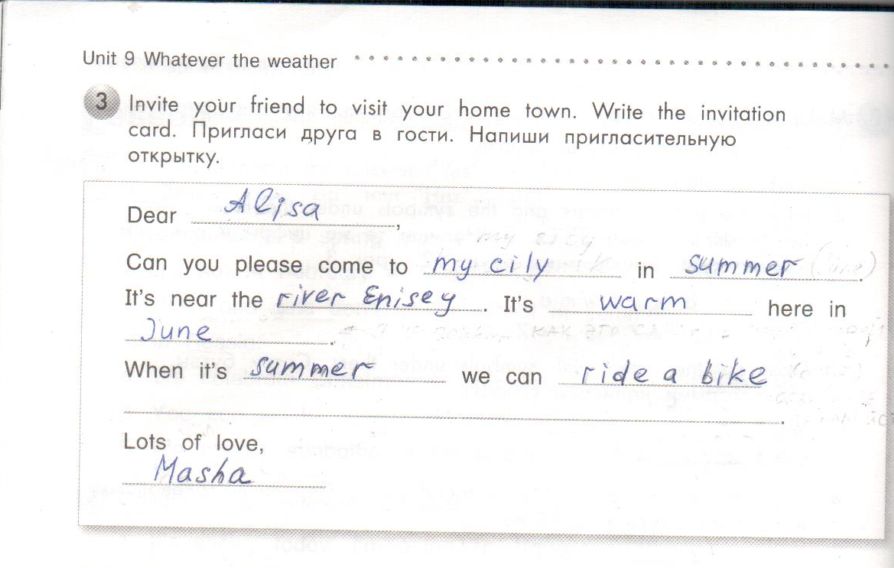 Unit 9 Whatever the weather
3 Invite your friend to visit your home town. Write the invitation
card. Пригласи друга в гости. Напиши пригласительную
открытку.
Dear Alisa,
Can you please come to my cily in summer.
It's near the river Enisey. It's warm here in
June.
When it's summer we can ride a bike
.
Lots of love,
Masha